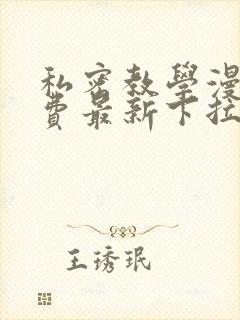 私密教學漫
費最新下拉
王琇珉